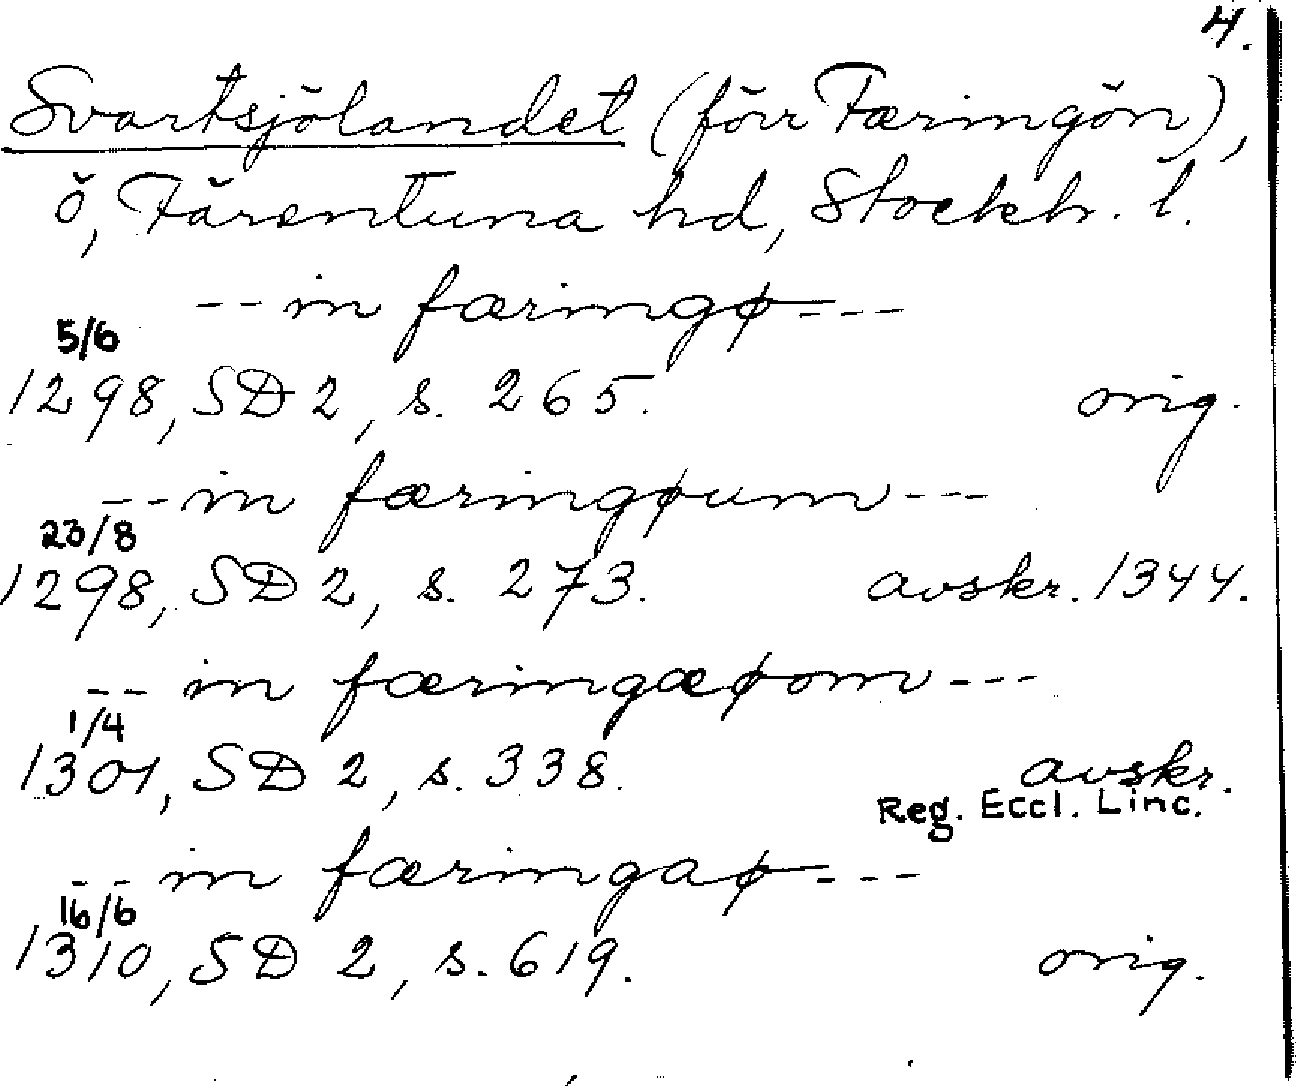 4.
Svartsjölandet (förr Færingön),
ö, Färentuna hd, Stockh. l.
-- in færingø ---
5/6
1298, SD 2, s. 265. orig.
-- in færingøum ---
23/8
1298, SD 2, s. 273. avskr. 1344.
-- in færingæøom ---
1/4
1301, SD 2, s. 338. avskr.
Reg. Eccl. Linc.
-- in færingaø ---
16/6
1310, SD 2, s. 619. orig.